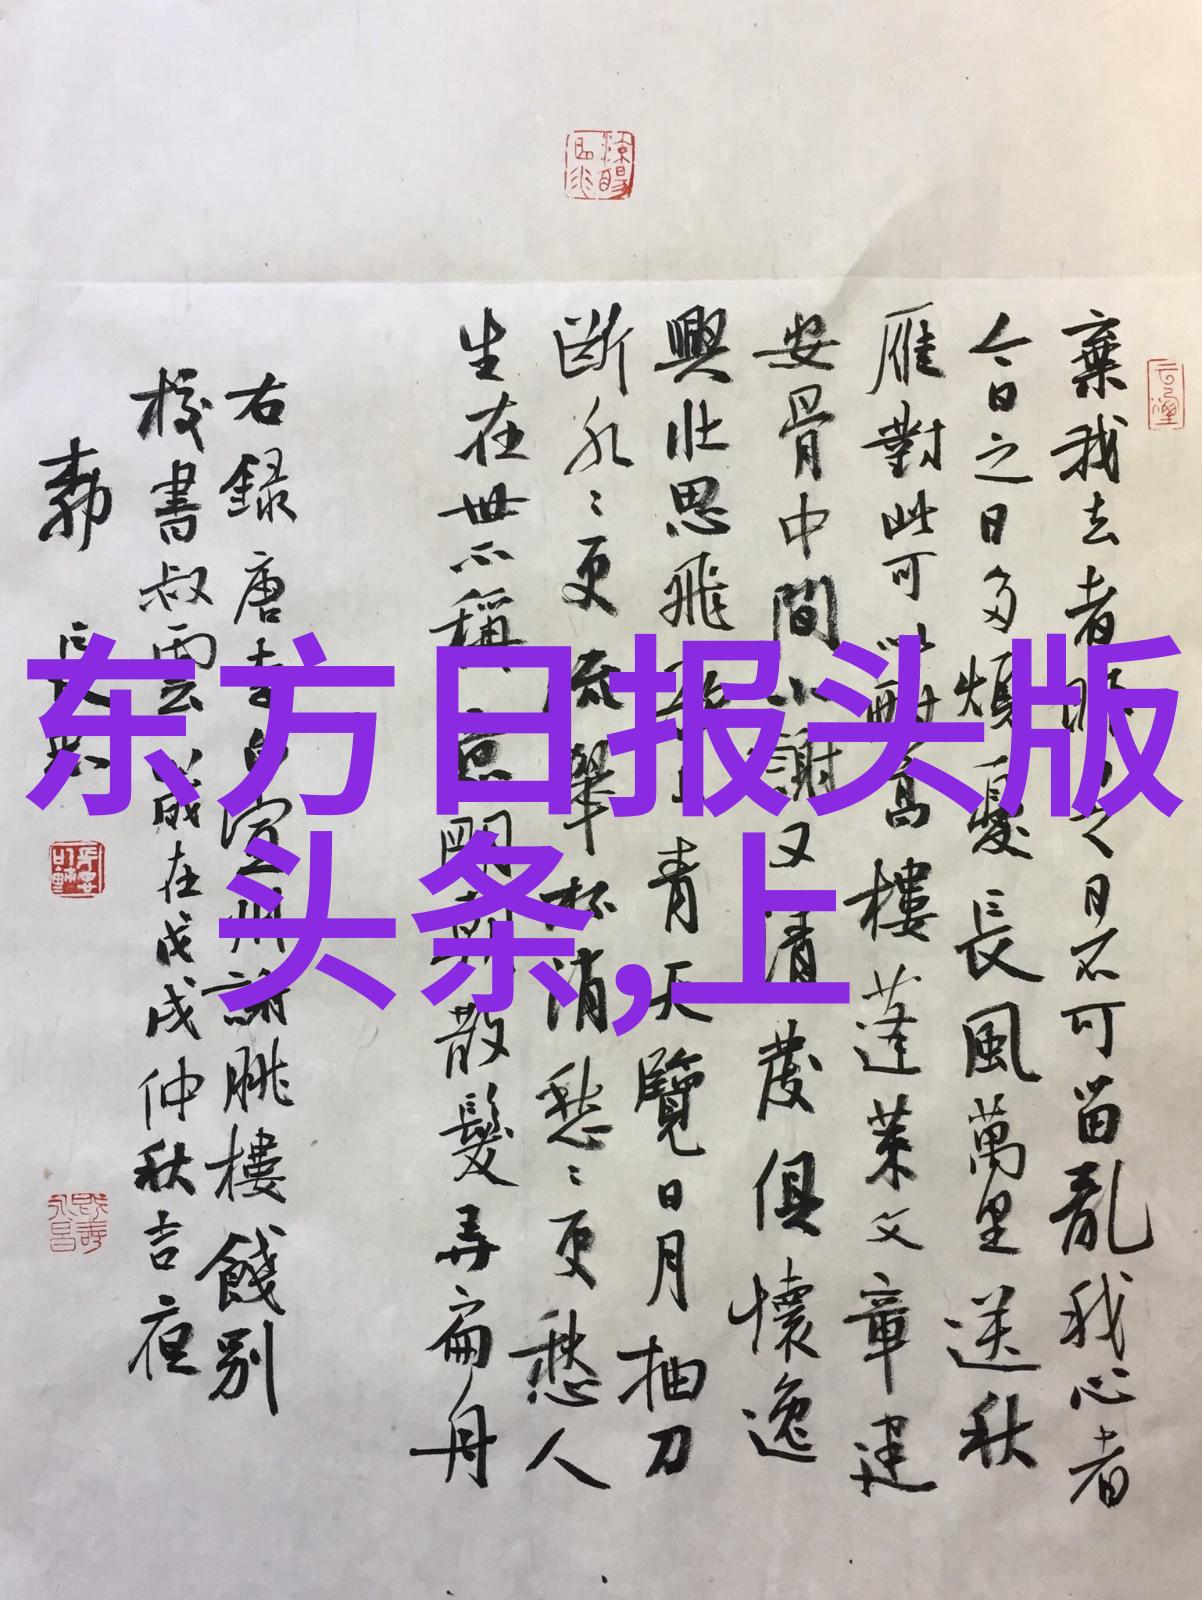 东方日报头版
头条,上
棄我去者昨日之日不可留亂我心者
今日之日多煩憂長風萬里送秋
雁對此可以酣高樓蓬萊文章建
安骨中間小謝又清發俱懷逸
興壯思飛欲上青天覽日月抽刀
斷水〻更流舉杯消愁〻更愁人
生在世不稱意明朝散髮弄扁舟
右錄唐李白宣州謝朓樓餞別
校書叔雲歲在戊戌仲秋吉夜